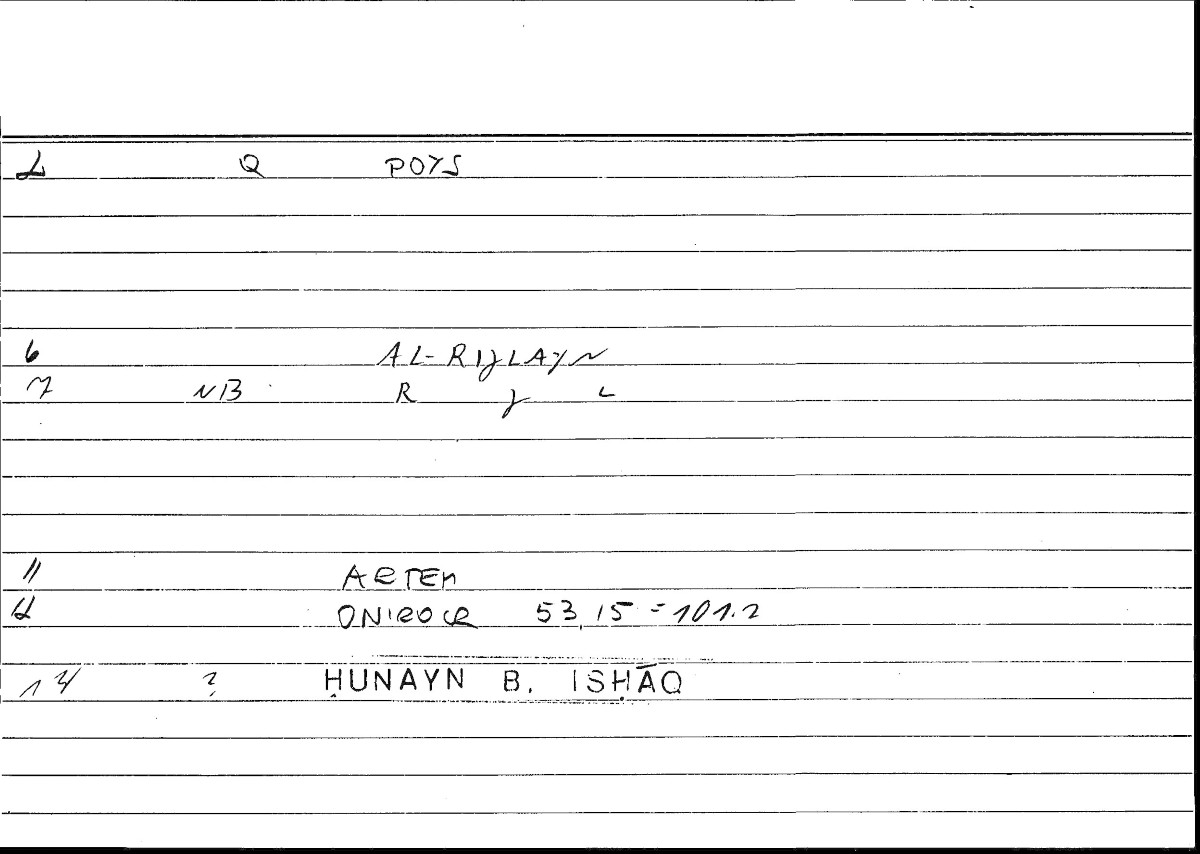 1 Q POYS
6 AL-RIJLAYN
7 NB R J L
11 ARTEM
12 ONIROCR 53,15 = 101.2
14 ? ḤUNAYN B. ISḤĀQ